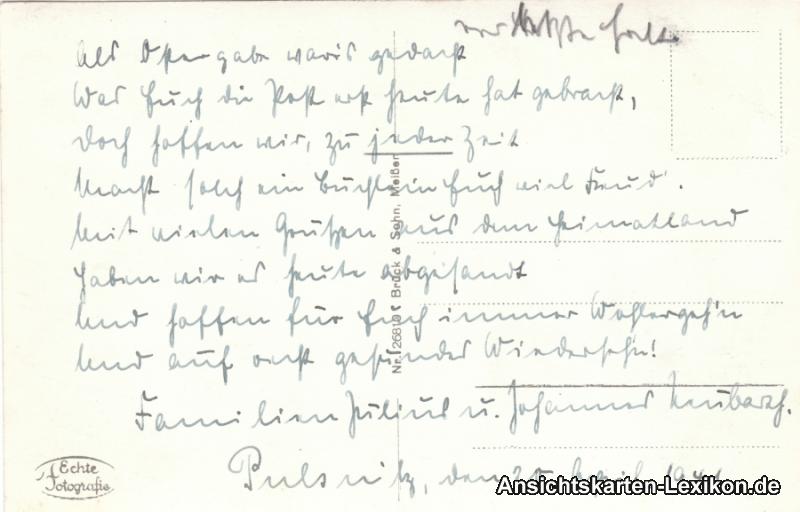 Als Ostergabe war's gedacht
Was Euch die Post erst heute hat gebracht,
Doch hoffen wir, zu jeder Zeit
Macht solch ein Büchlein Euch viel Freud'.
Mit vielen Grüßen aus dem Heimatland
Haben wir es heute abgesandt
Und hoffen für Euch immer Wohlergeh'n
Und auf recht gesundes Wiederseh'n!
Familien Julius u. Johannes
Pulsnitz, den 25. April
Nr. 26819 Brück & Sohn, Meißen
Echte
Fotografie
Ansichtskarten-Lexikon.de